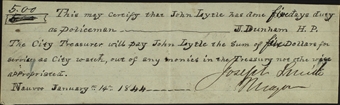 5.00 This may certify that John Lytle has done five days duty
as Policeman J. Dunham H. P.
The City Treasurer will pay John Lytle the Sum of five Dollars for
services as City watch, out of any monies in the Treasury not otherwise
appropriated. Joseph Smith
Nauvoo January 14th 1844. Mayor